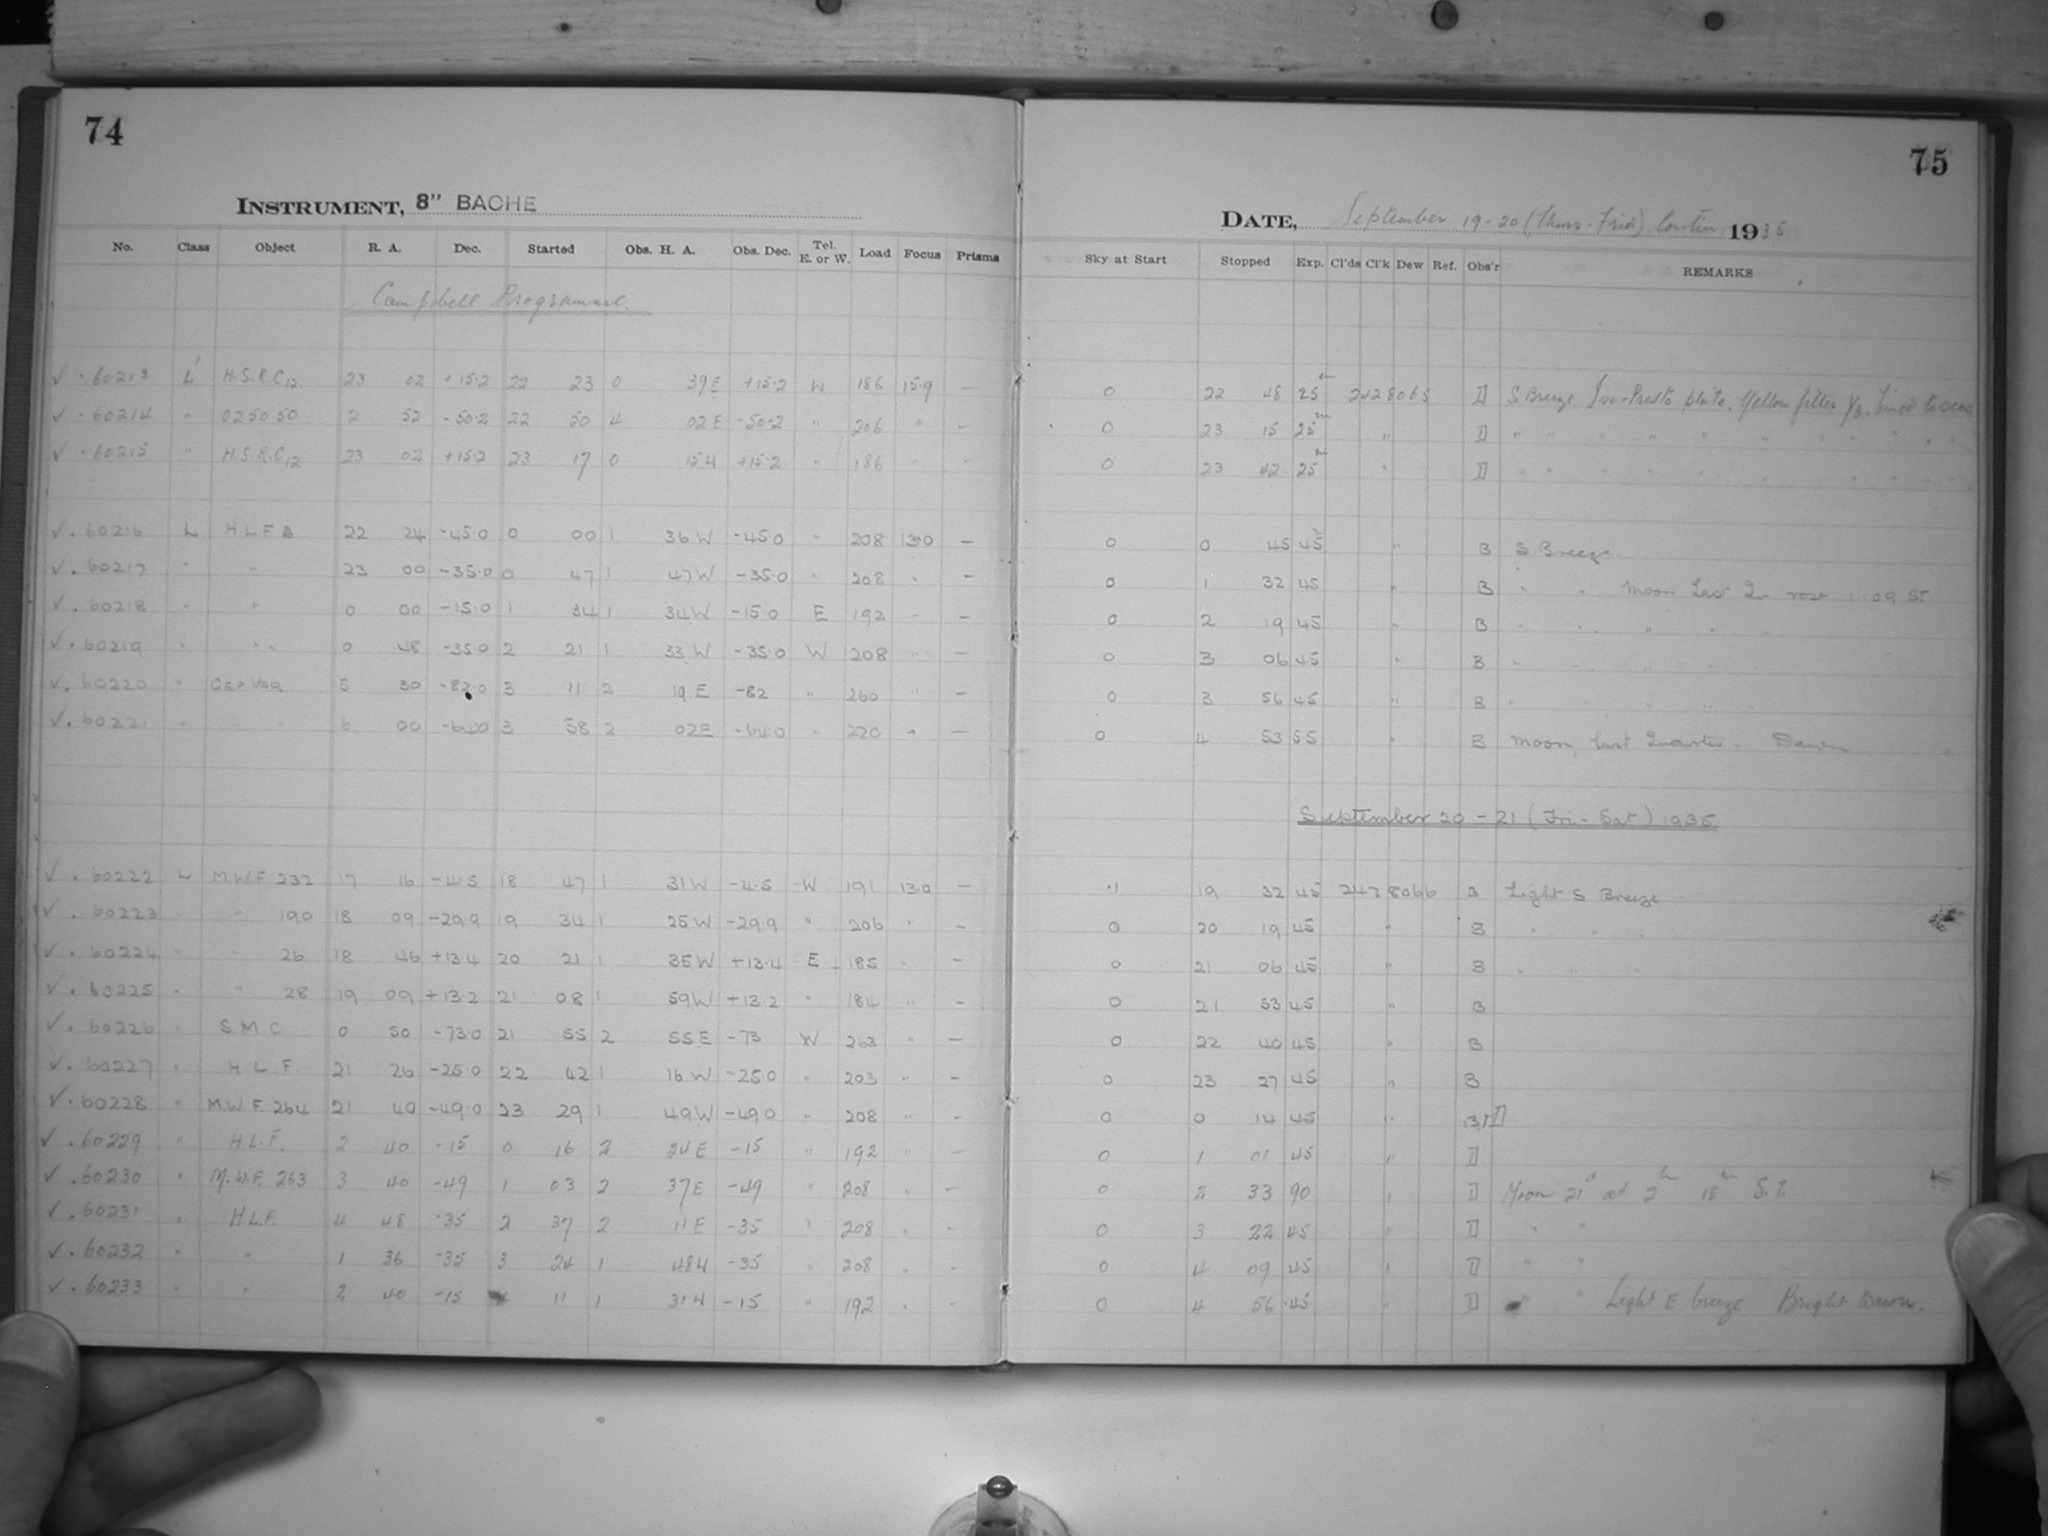 74
75
INSTRUMENT, 8" BACHE
DATE, September 19-20 (Thurs-Frid) 1935
No. Class Object R. A. Dec. Started Obs. H. A. Obs. Dec. Tel. E. or W. Load Focus Prisms Sky at Start Stopped Exp. Cl'ds Cl'k Dew Ref. Obs'r REMARKS
Campbell Programme.
✓ . 60213 L H.S.R.C12 23 02 +15.2 22 23 0 39E +15.2 W 186 15.9 — 0 22 48 25m 2428065 D S. Breeze Iso-Presto plate. Yellow filter
✓ . 60214 " 025050 2 52 -50.2 22 50 4 02E -50.2 " 206 " — 0 23 15 25m " D " " " " " "
✓ . 60215 " H.S.R.C12 23 02 +15.2 23 17 0 15W +15.2 " 186 " — 0 23 42 25m " D " " " " " "
✓ . 60216 L H L F 22 24 -45.0 0 00 1 36W -45.0 " 208 13.0 — 0 0 45 45 " B S Breeze
✓ . 60217 " " 23 00 -35.0 0 47 1 47W -35.0 " 208 " — 0 1 32 45 " B " " Moon Last Qr rose 1:09 ST
✓ . 60218 " " 0 00 -15.0 1 34 1 34W -15.0 E 192 " — 0 2 19 45 " B " " " " "
✓ . 60219 " " " 0 48 -35.0 2 21 1 33W -35.0 W 208 " — 0 3 06 45 " B " " " " "
✓ . 60220 " 5 30 -82.0 3 11 2 19E -82 " 260 " — 0 3 56 45 " B " " " " "
✓ . 60221 " " " 6 00 -64.0 3 58 2 02E -64.0 " 220 " — 0 4 53 55 " B Moon, last Quarter. Dawn
September 20-21 (Fri-Sat) 1935
✓ . 60222 L M.W.F 232 17 16 -4.5 18 47 1 31W -4.5 W 191 13.0 — .1 19 32 45 2428066 B Light S Breeze
✓ . 60223 " " 190 18 09 -29.9 19 34 1 25W -29.9 " 206 " — 0 20 19 45 " B " " "
✓ . 60224 " " 26 18 46 +13.4 20 21 1 35W +13.4 E 185 " — 0 21 06 45 " B " " "
✓ . 60225 " " 28 19 09 +13.2 21 08 1 59W +13.2 " 184 " — 0 21 53 45 " B
✓ . 60226 " S M C 0 50 -73.0 21 55 2 55E -73 W 263 " — 0 22 40 45 " B
✓ . 60227 " H L F. 21 26 -25.0 22 42 1 16W -25.0 " 203 " — 0 23 27 45 " B
✓ . 60228 " M.W.F. 264 21 40 -49.0 23 29 1 49W -49.0 " 208 " — 0 0 14 45 " B/D
✓ . 60229 " H.L.F. 2 40 -15 0 16 2 24E -15 " 192 " — 0 1 01 45 " D
✓ . 60230 " M.W.F. 263 3 40 -49 1 03 2 37E -49 " 208 " — 0 2 33 90 " D Moon 21d at 2h 15m S.T.
✓ . 60231 " H.L.F. 4 48 -35 2 37 2 11E -35 " 208 " — 0 3 22 45 " D " "
✓ . 60232 " " 1 36 -35 3 24 1 48W -35 " 208 " — 0 4 09 45 " D " "
✓ . 60233 " " 2 40 -15 4 11 1 31W -15 " 192 " — 0 4 56 45 " D " " Light E breeze Bright dawn.